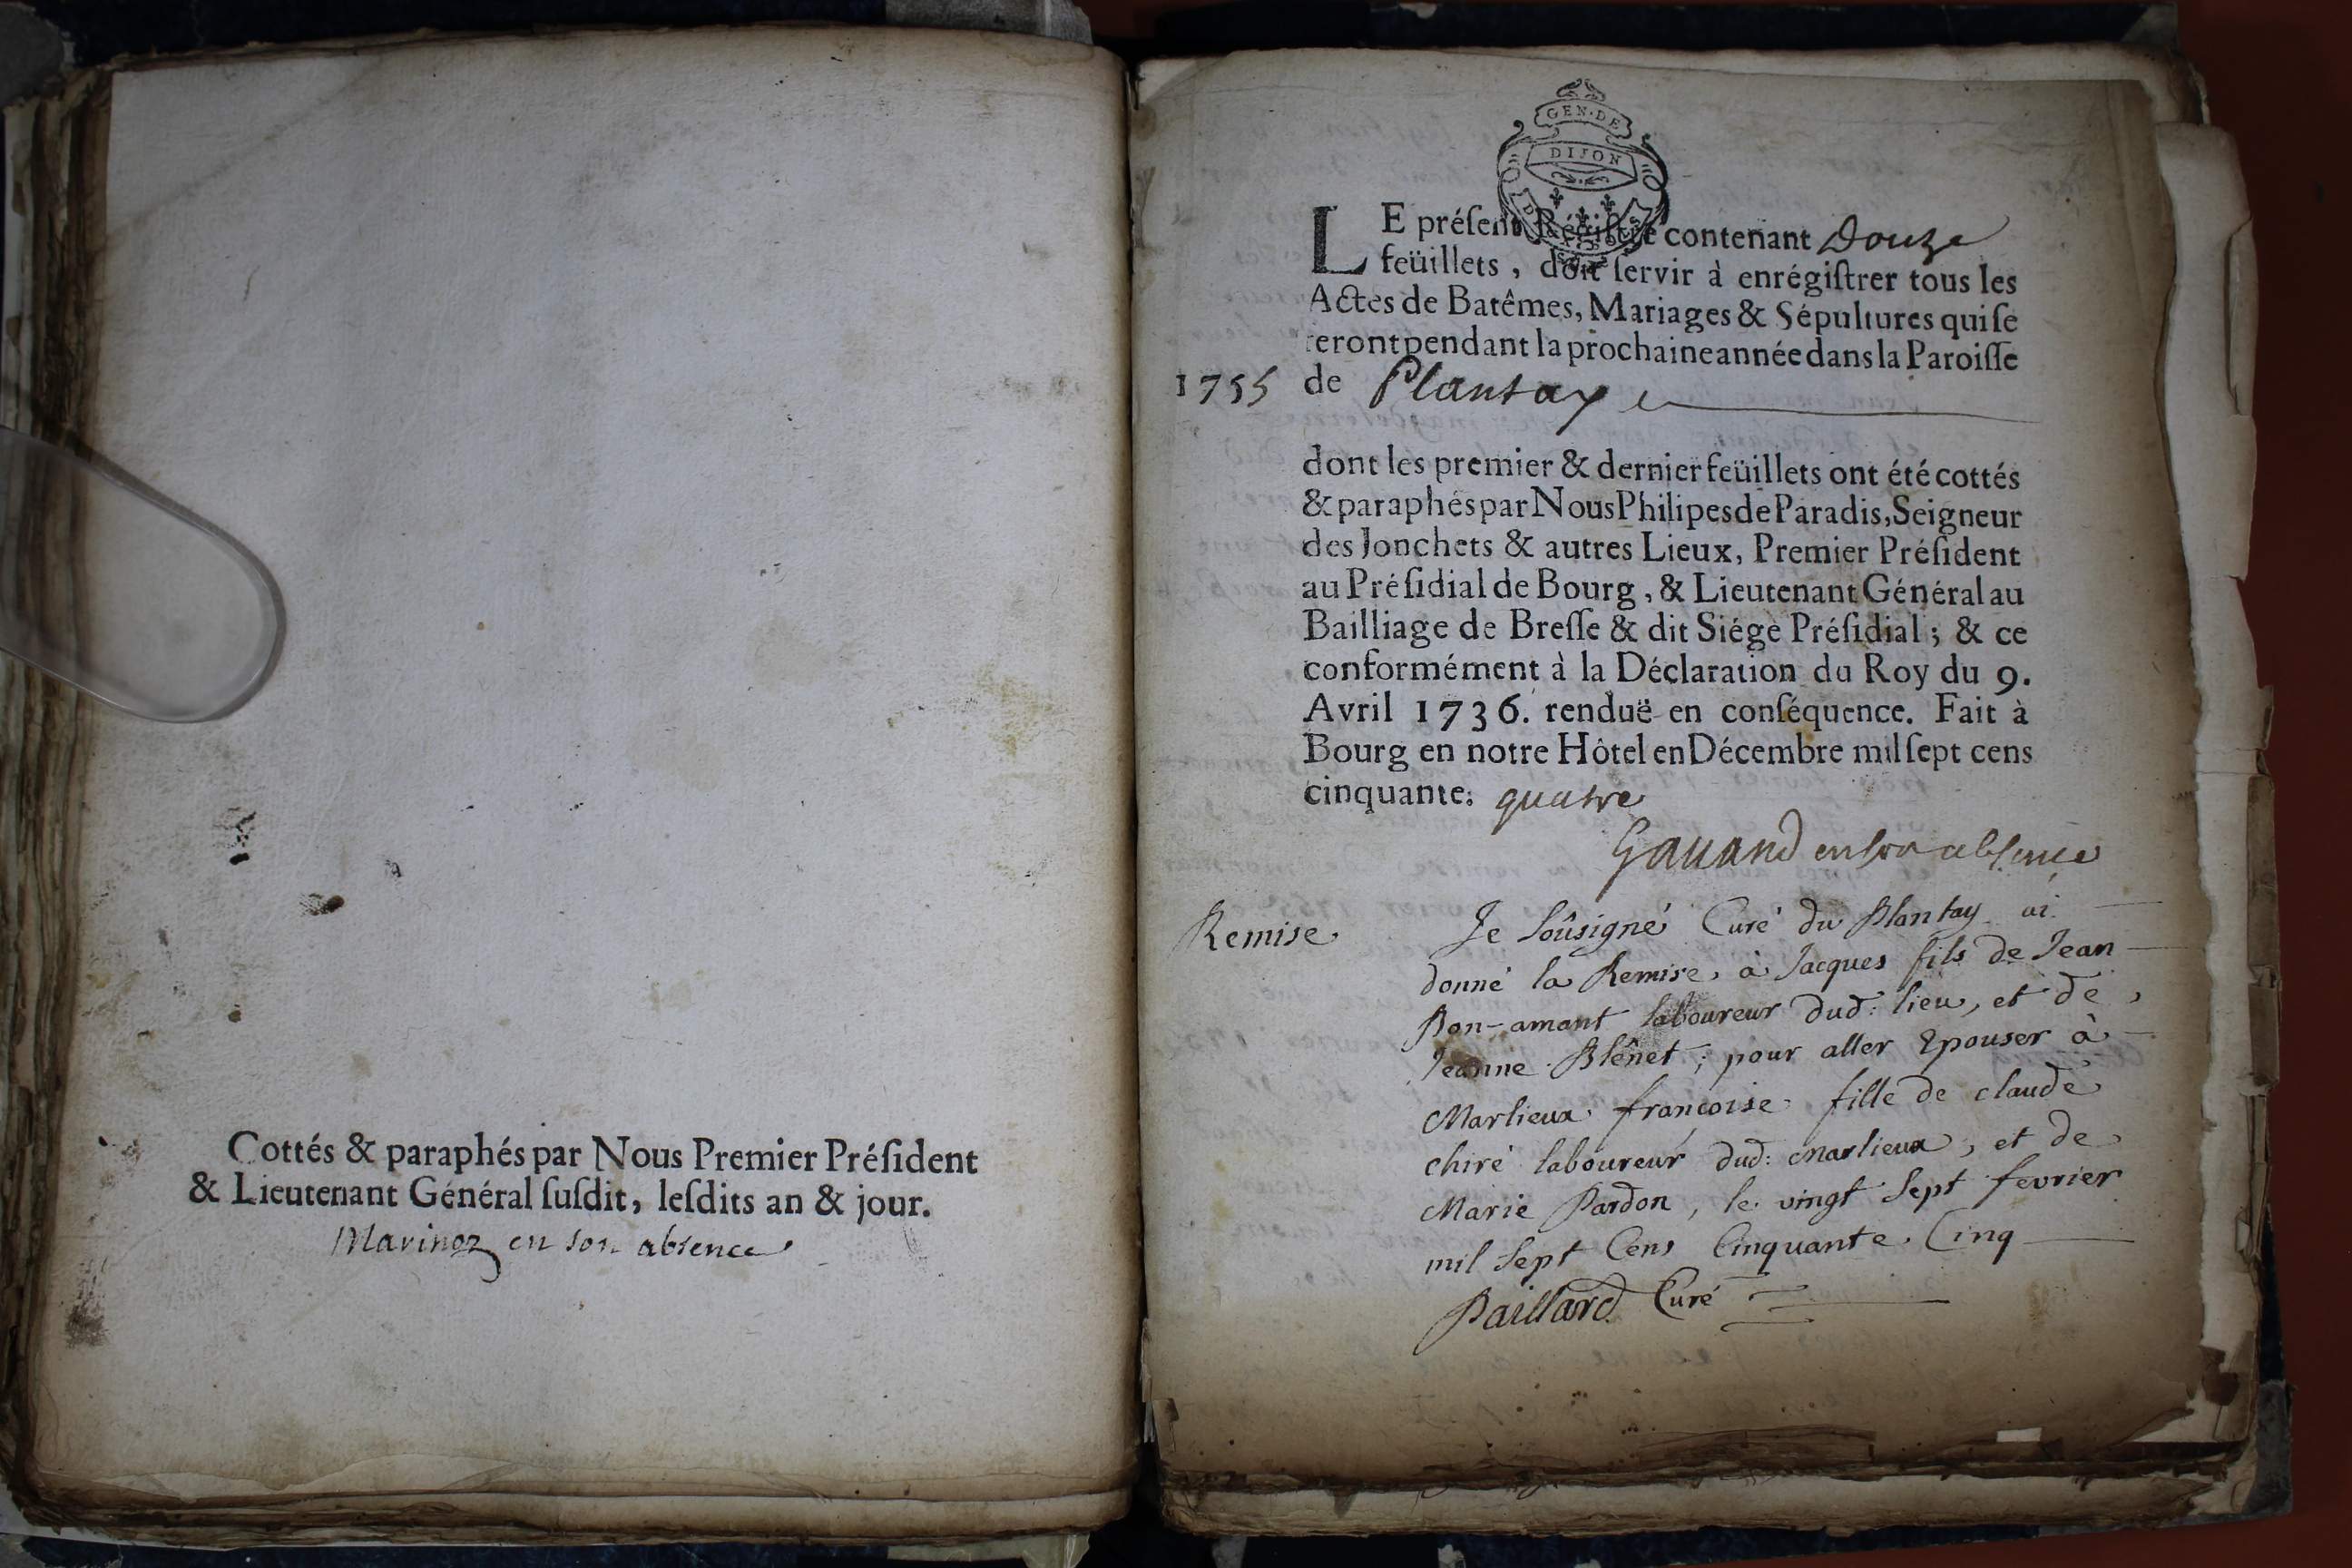 Cottés & paraphés par Nous Premier Préſident
& Lieutenant Général ſuſdit, leſdits an & jour.
Marinoz en son absence
GEN·DE
DIJON
LE préſent Régiſtre contenant Douze
feüillets, doit ſervir à enrégiſtrer tous les
Actes de Batêmes, Mariages & Sépultures qui ſe
feront pendant la prochaine année dans la Paroiſſe
1755 de Plantay
dont les premier & dernier feüillets ont été cottés
& paraphés par Nous Philipes de Paradis, Seigneur
des Jonchets & autres Lieux, Premier Préſident
au Préſidial de Bourg, & Lieutenant Général au
Bailliage de Breſſe & dit Siége Préſidial; & ce
conformément à la Déclaration du Roy du 9.
Avril 1736. renduë en conſéquence. Fait à
Bourg en notre Hôtel en Décembre mil ſept cens
cinquante. quatre
Gauand en son absence
Remise Je soûsigné Curé du Plantay ai
donné la Remise, à Jacques fils de Jean
Bon-amant laboureur dud: lieu, et de
Jeanne Blênet; pour aller Epouser à
Marlieux françoise fille de claude
chiré laboureur dud: Marlieux, et de
Marie Pardon, le vingt Sept fevrier
mil Sept Cens Cinquante Cinq
Paillard Curé